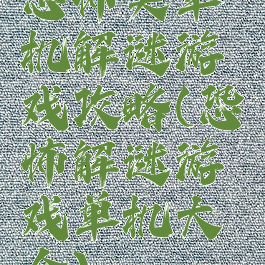 恐怖类单
机解谜游
戏攻略(恐
怖解谜游
戏单机大
全)